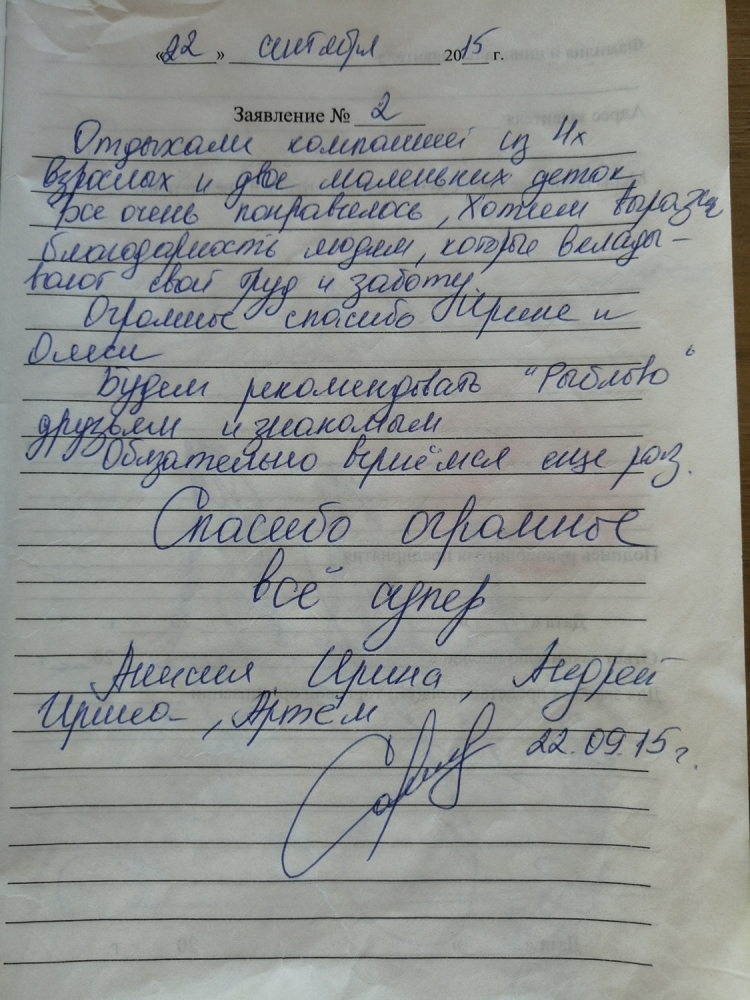 «22» сентября 2015 г.
Заявление № 2
Отдыхали компанией из 4х
взрослых и двое маленьких деток
Все очень понравилось, Хотим выразить
благодарность людям, которые вклады-
вают свой труд и заботу.
Огромное спасибо Ирине и
Олеси
Будем рекомендовать "Рыблово"
друзьям и знакомым
Обязательно вернёмся еще раз.
Спасибо огромное
всё супер
Ирина, Андрей
Ирина, Артём
22.09.15 г.